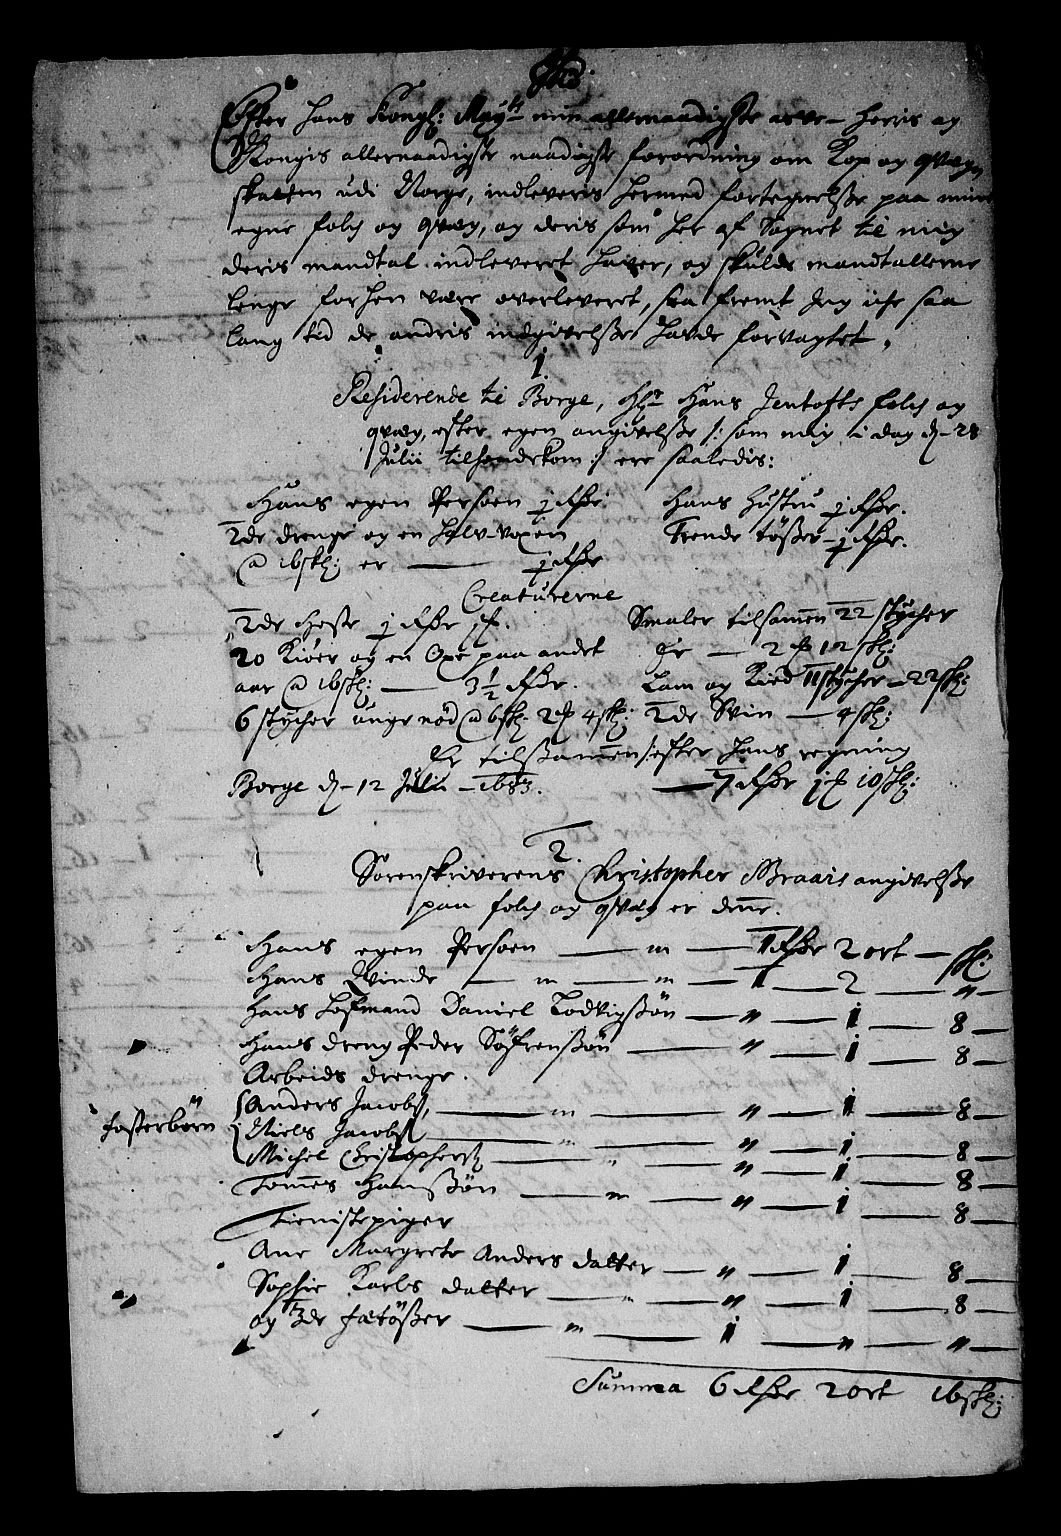 Efter Hans Kongl: Maytt min allernaadigste arfve Herris og
Kongis allernaadigste naadigste forordning om Kop og qvæg
skatten udi Norge, indleveris hermed fortegnelsse paa mine
egne folch og qvæg, og deris som her af Sognet til mig
deris mandtal indleveret hafver, og skulde mandtallerne
lenge forhen være ofverleveret, saa fremt Jeg iche saa
lang tid de andris indgivelsse hafde forvagtet.
1.
Residerende til Borge, Hr Hans Jentofts folch og
qvæg, efter egen angivelsse /: som mig i dag d. 28
Julii tilhendekom :/ ere saaledis:
Hans egen Persoen j Rdr. Hans Hustru j Rdr.
2de drenge og en halv-voxen Trende tøßer j Rdr.
a 16 skl: er j Rdr
Creaturerne
2de Heste j Rdr j . Smaler tilsamen 22 stycher
20 Kiøer og en Oxe paa andet Er 2 12 skl:
aar a 16 skl: 3½ Rdr. Lam og Kied 11 stycher 22 skl:
6 stycher unge nød a 6 skl: 2 4 skl: 2de Svin 4 skl:
Er tilsammens efter hans regning
Borge d. 12 Julii 1683. 7 Rdr j 10 skl:
2.
Sorenskriverens Christopher Braais angivelsse
paa folch og qvæg er denne.
Hans egen Persoen " 1 Rdr 2 ort skl:
Hans Qvinde " " 1 2 "
Hans Lofmand Daniel Lodvigßøn " 1 8
Hans dreng Peder Søfrenßøn " 1 8
Arbeids drenge.
Anders Jacobs, " " 1 8
fosterbørn Niels Jacobs " " 1 8
Michel Christophers " " 1 8
Tommes Hanssøn " " 1 8
Tienistepiger
Ane Margrete Anders datter " 1 8
Sophie Karls datter " " 1 8
og 3de fætøßer " 1 " "
Summa 6 Rdr 2 ort 16 skl: